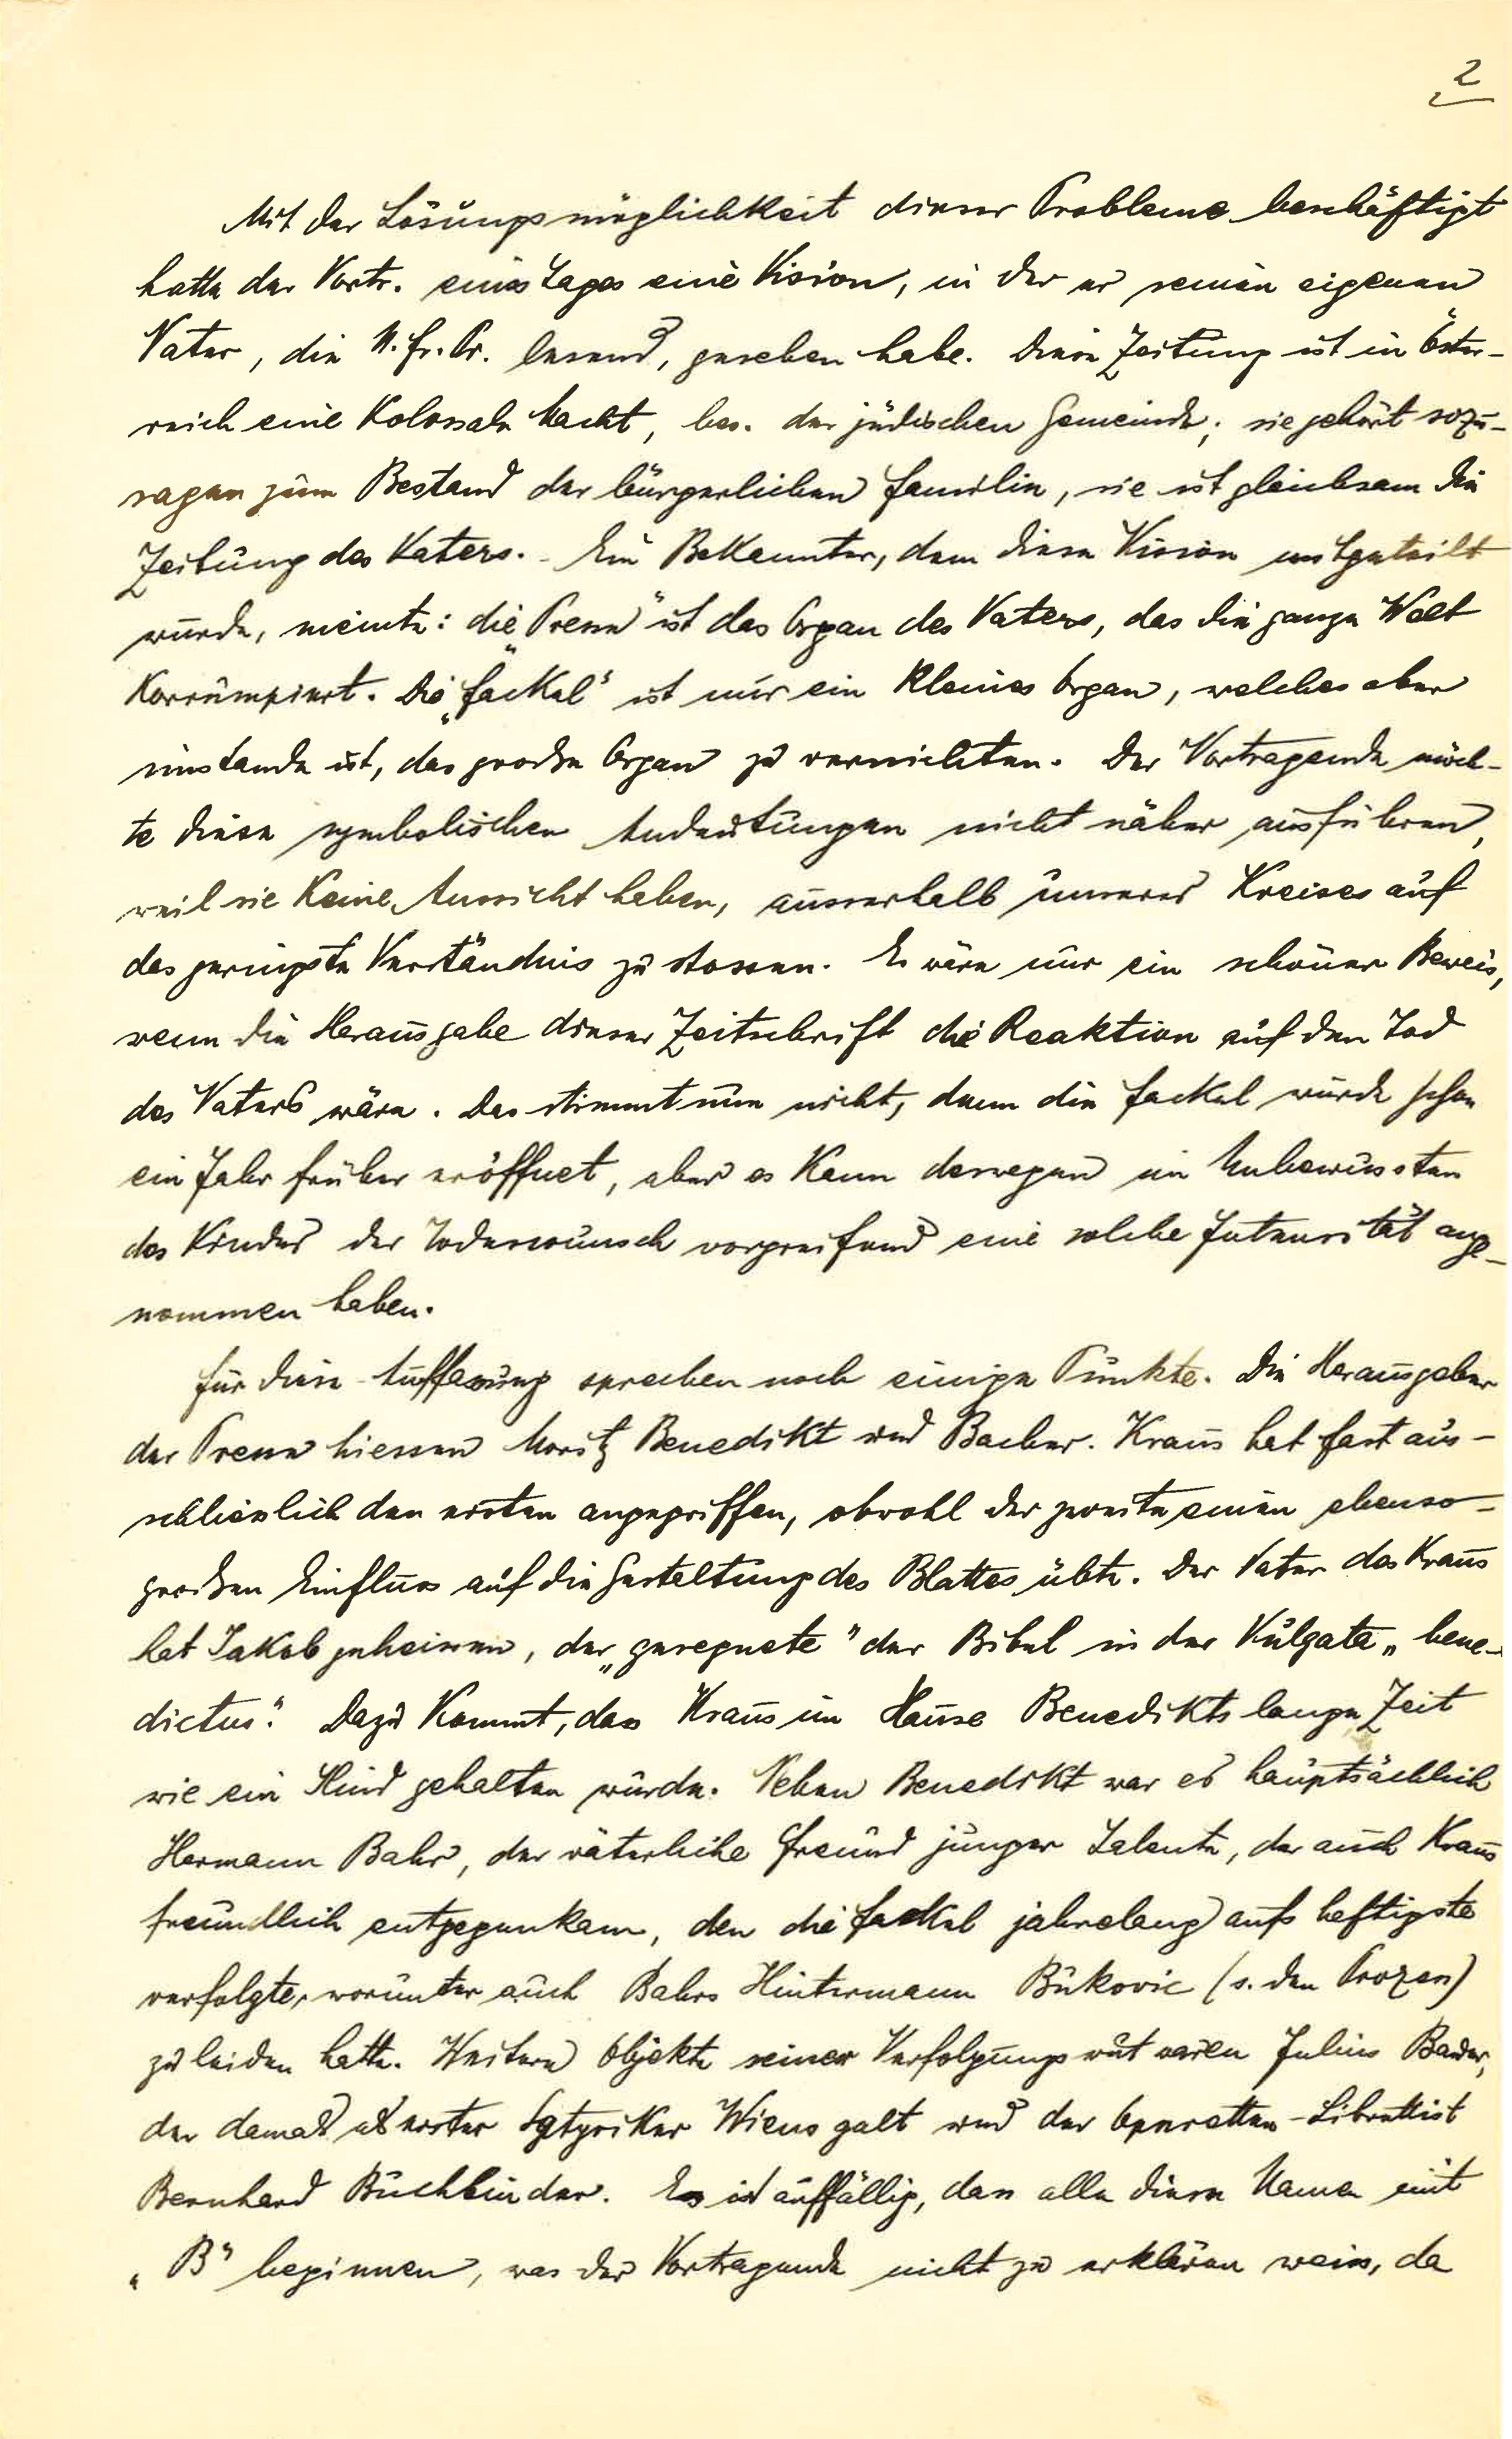 2
Mit der Lösungsmöglichkeit dieser Probleme beschäftigt
hatte der Vortr. eines Tages eine Vision, in der er seinen eigenen
Vater, die N. fr. Pr. lesend, gesehen habe. Diese Zeitung ist in Öster-
reich eine kolossale Macht, bes. der jüdischen Gemeinde; sie gehört sozu-
sagen zum Bestand der bürgerlichen Familie, sie ist gleichsam die
Zeitung des Vaters. – Ein Bekannter, dem diese Vision mitgeteilt
wurde, meinte: die „Presse" ist das Organ des Vaters, das die ganze Welt
korrumpiert. Die „Fackel" ist nur ein kleines Organ, welches aber
imstande ist, das große Organ zu vernichten. Der Vortragende möch-
te diese symbolischen Andeutungen nicht näher ausführen,
weil sie keine Aussicht haben, ausserhalb unseres Kreises auf
das geringste Verständnis zu stossen. Es wäre nur ein schöner Beweis,
wenn die Herausgabe dieser Zeitschrift die Reaktion auf den Tod
des Vaters wäre. Das stimmt nun nicht, denn die Fackel wurde schon
ein Jahr früher eröffnet, aber es kann deswegen im Unbewussten
des Kindes der Todeswunsch vorgreifend eine solche Intensität ange-
nommen haben.
Für diese Auffassung sprechen noch einige Punkte. Die Herausgeber
der Presse hiessen Moritz Benedikt und Bacher. Kraus hat fast aus-
schliesslich den ersten angegriffen, obwohl der zweite einen ebenso-
großen Einfluss auf die Gestaltung des Blattes übte. Der Vater des Kraus
hat Jakob geheissen, der „gesegnete" der Bibel in der Vulgata „bene-
dictus". Dazu kommt, dass Kraus im Hause Benedikts lange Zeit
wie ein Kind gehalten wurde. Neben Benedikt war es hauptsächlich
Hermann Bahr, der väterliche Freund junger Talente, der auch Kraus
freundlich entgegenkam, den die Fackel jahrelang aufs heftigste
verfolgte, worunter auch Bahrs Hintermann Bukovic (s. den Prozess)
zu leiden hatte. Weitere Objekte seiner Verfolgungswut waren Julius Bauer,
der damals als erster Satyriker Wiens galt und der Operetten-Librettist
Bernhard Buchbinder. Es ist auffällig, dass alle diese Namen mit
„B" beginnen, was der Vortragende nicht zu erklären weiss, da